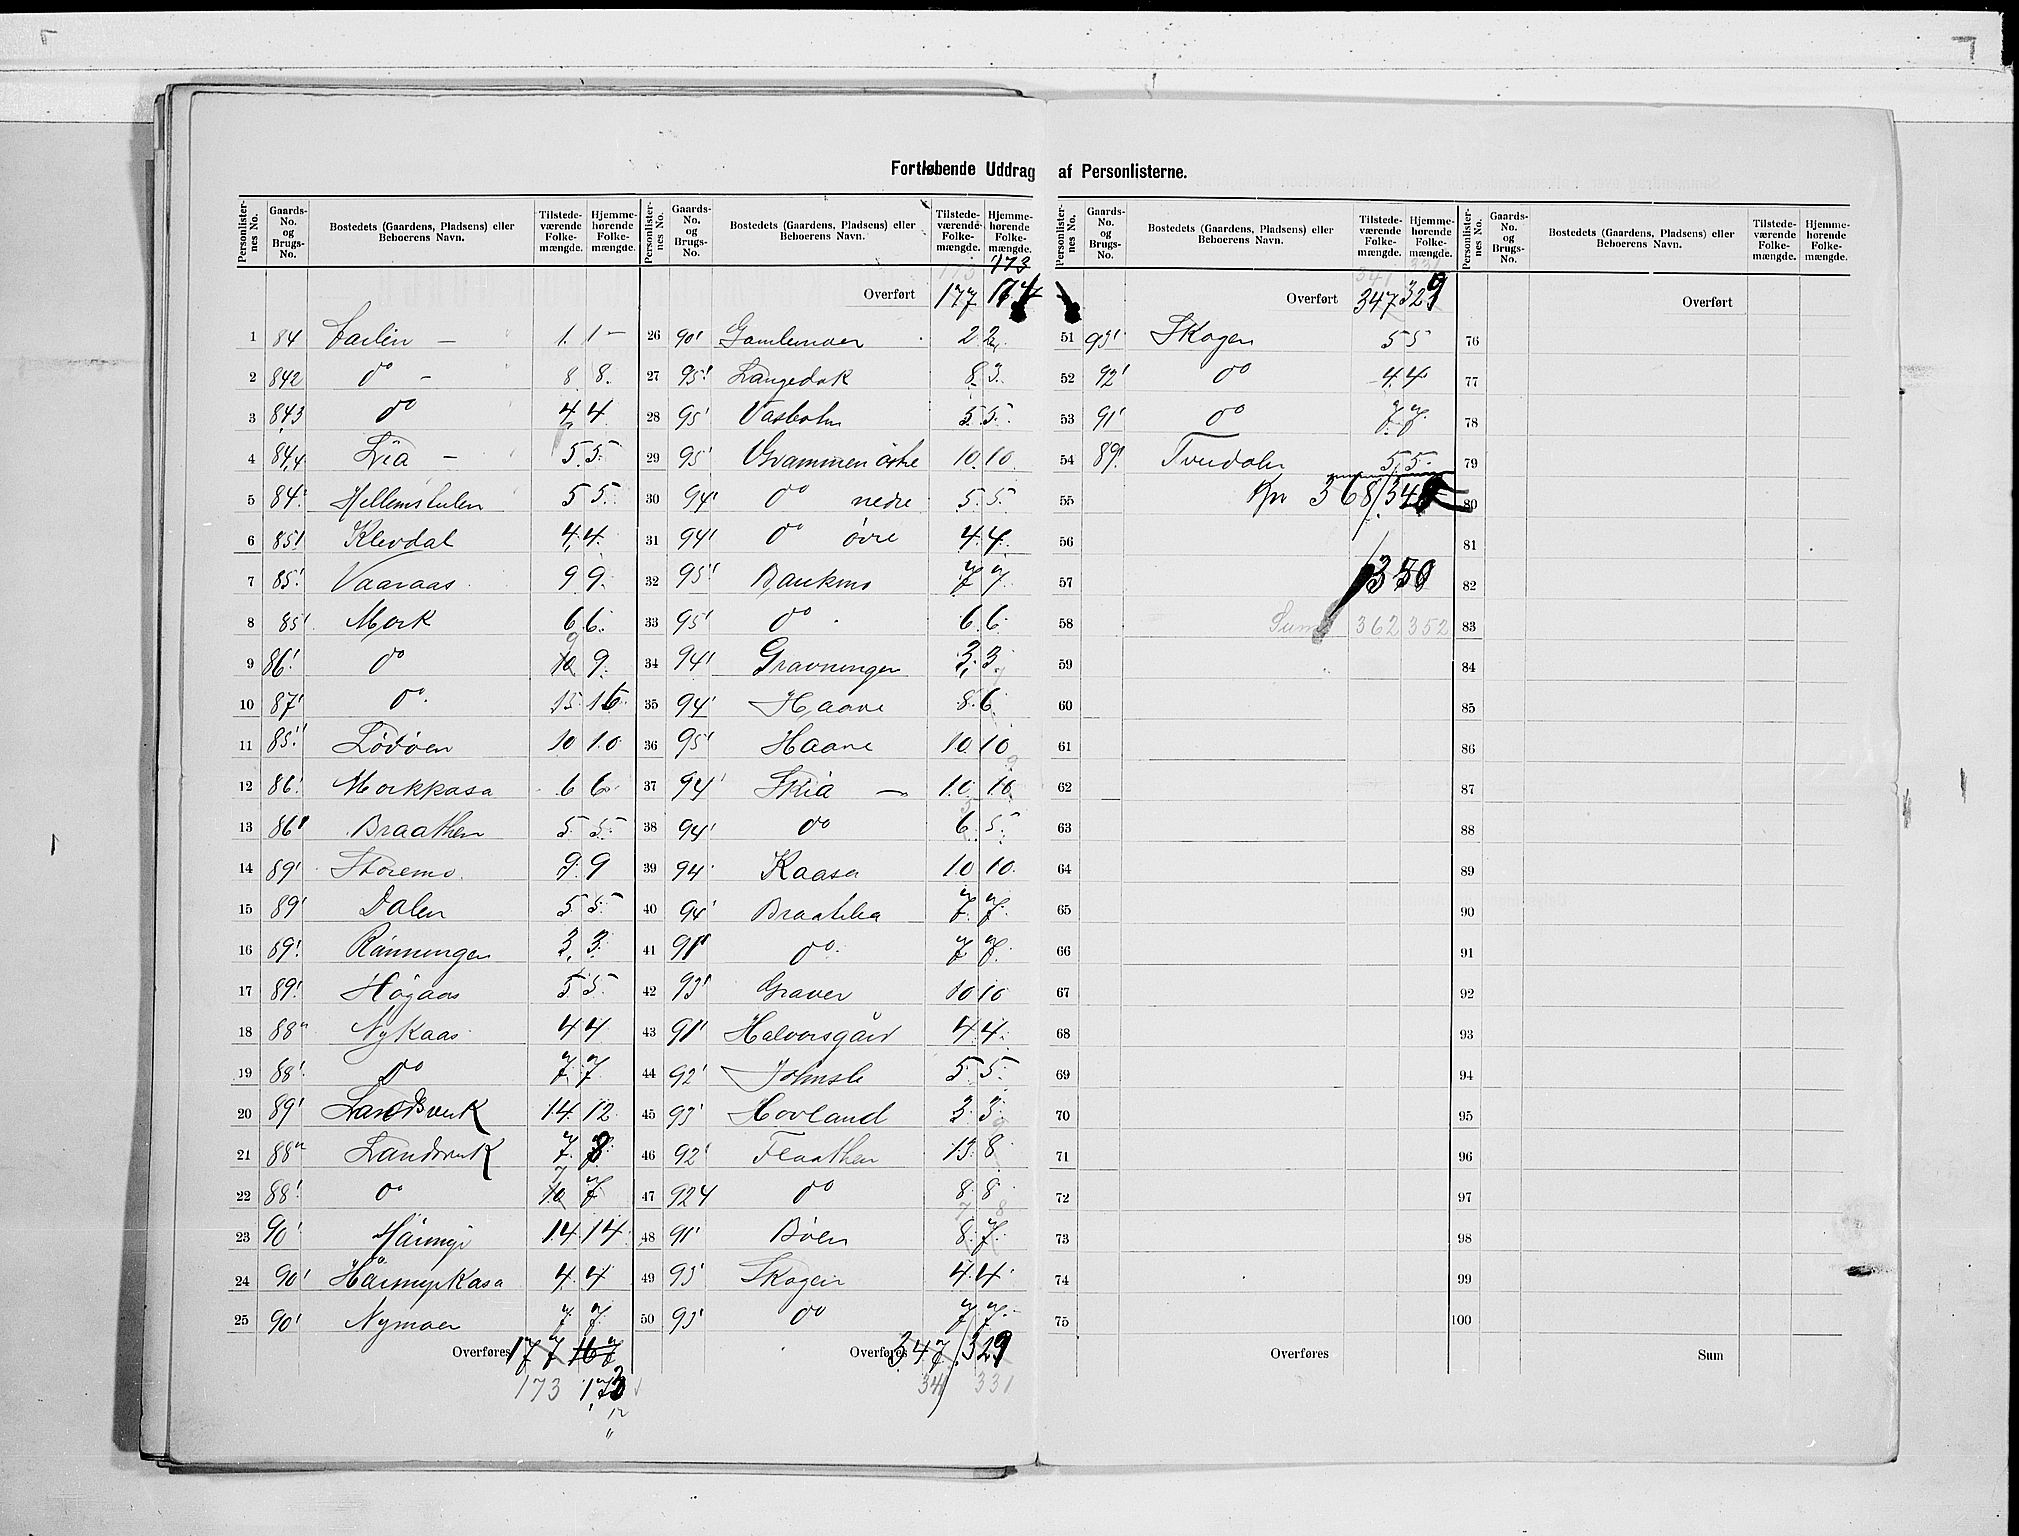 Fortløbende Uddrag af Personlisterne.
Personlister-nes No. Gaards-No. og Brugs-No. Bostedets (Gaardens, Pladsens) eller Beboerens Navn. Tilstede-værende Folke-mængde. Hjemme-hørende Folke-mængde.
1 84 1. 1 –
2 842 do – 8. 8.
3 84,3 do 4 4.
4 84,4 Lia – 5. 5.
5 84. 5 5.
6 85.1 Klevdal 4. 4.
7 85.1 Vaaraas 9 9.
8 85.1 Mork 6 6.
9 86.1 do 10 9 9.
10 87.1 do. 15. 16.
11 85.1 10 10
12 86.1 Morkkasa 6 6.
13 86.1 Braathen 5. 5.
14 89.1 Storemo. 9. 9
15 89.1 Dalen 5 5.
16 89.1 Rønningen 3. 3.
17 89.1 Høgaas 5 5.
18 88 Nykaas 4 4
19 88.1 do 7. 7.
20 89.1 Landsverk 14. 12.
21 88 Landsverk 7. 8.
22 88.1 do 10 7 7.
23 90.1 14 14.
24 90.1 4. 4
25 90.1 Nymoen 7. 7.
Overføres 177 167
173 173
Personlister-nes No. Gaards-No. og Brugs-No. Bostedets (Gaardens, Pladsens) eller Beboerens Navn. Tilstede-værende Folke-mængde. Hjemme-hørende Folke-mængde.
173 173
Overført 177
26 90.1 Gamlemoen 2. 2.
27 95.1 Langedok 8. 3.
28 95.1 Vasbotn 5. 5.
29 95.1 Gvammen østre 10. 10.
30 94.1 do nedre 5. 5.
31 94.1 do øvre 4. 4.
32 95.1 7. 7.
33 95.1 do 6. 6.
34 94.1 Gravningen 3. 3.
35 94.1 Haave 8. 6.
36 95.1 Haave 10. 10
37 94.1 Skia – 10. 10
38 94.1 do 6. 5.
39 94. Kaasa 10 10.
40 94.1 7. 7.
41 91.1 do. 7 7.
42 93.1 Graver 10 10
43 91.1 Halvorsgård 4. 4.
44 92.1 5. 5.
45 93.1 Hovland 3. 3.
46 92.1 Flaathen 13. 8.
47 924 do 8. 8.
48 91.1 Bøen 8. 7.
49 93.1 Skogen 4. 4.
50 93.1 do 7. 7.
Overføres 347/329
341 331
Personlister-nes No. Gaards-No. og Brugs-No. Bostedets (Gaardens, Pladsens) eller Beboerens Navn. Tilstede-værende Folke-mængde. Hjemme-hørende Folke-mængde.
341 331
Overført 347 329
51 93.1 Skogen 5 5
52 92.1 do 4. 4
53 91.1 do 7. 7.
54 89. Tvedalen 5. 5.
55 368/
56
57 350
58 Sum 362 352
59
60
61
62
63
64
65
66
67
68
69
70
71
72
73
74
75
Overføres
Personlister-nes No. Gaards-No. og Brugs-No. Bostedets (Gaardens, Pladsens) eller Beboerens Navn. Tilstede-værende Folke-mængde. Hjemme-hørende Folke-mængde.
Overført
76
77
78
79
80
81
82
83
84
85
86
87
88
89
90
91
92
93
94
95
96
97
98
99
100
Sum